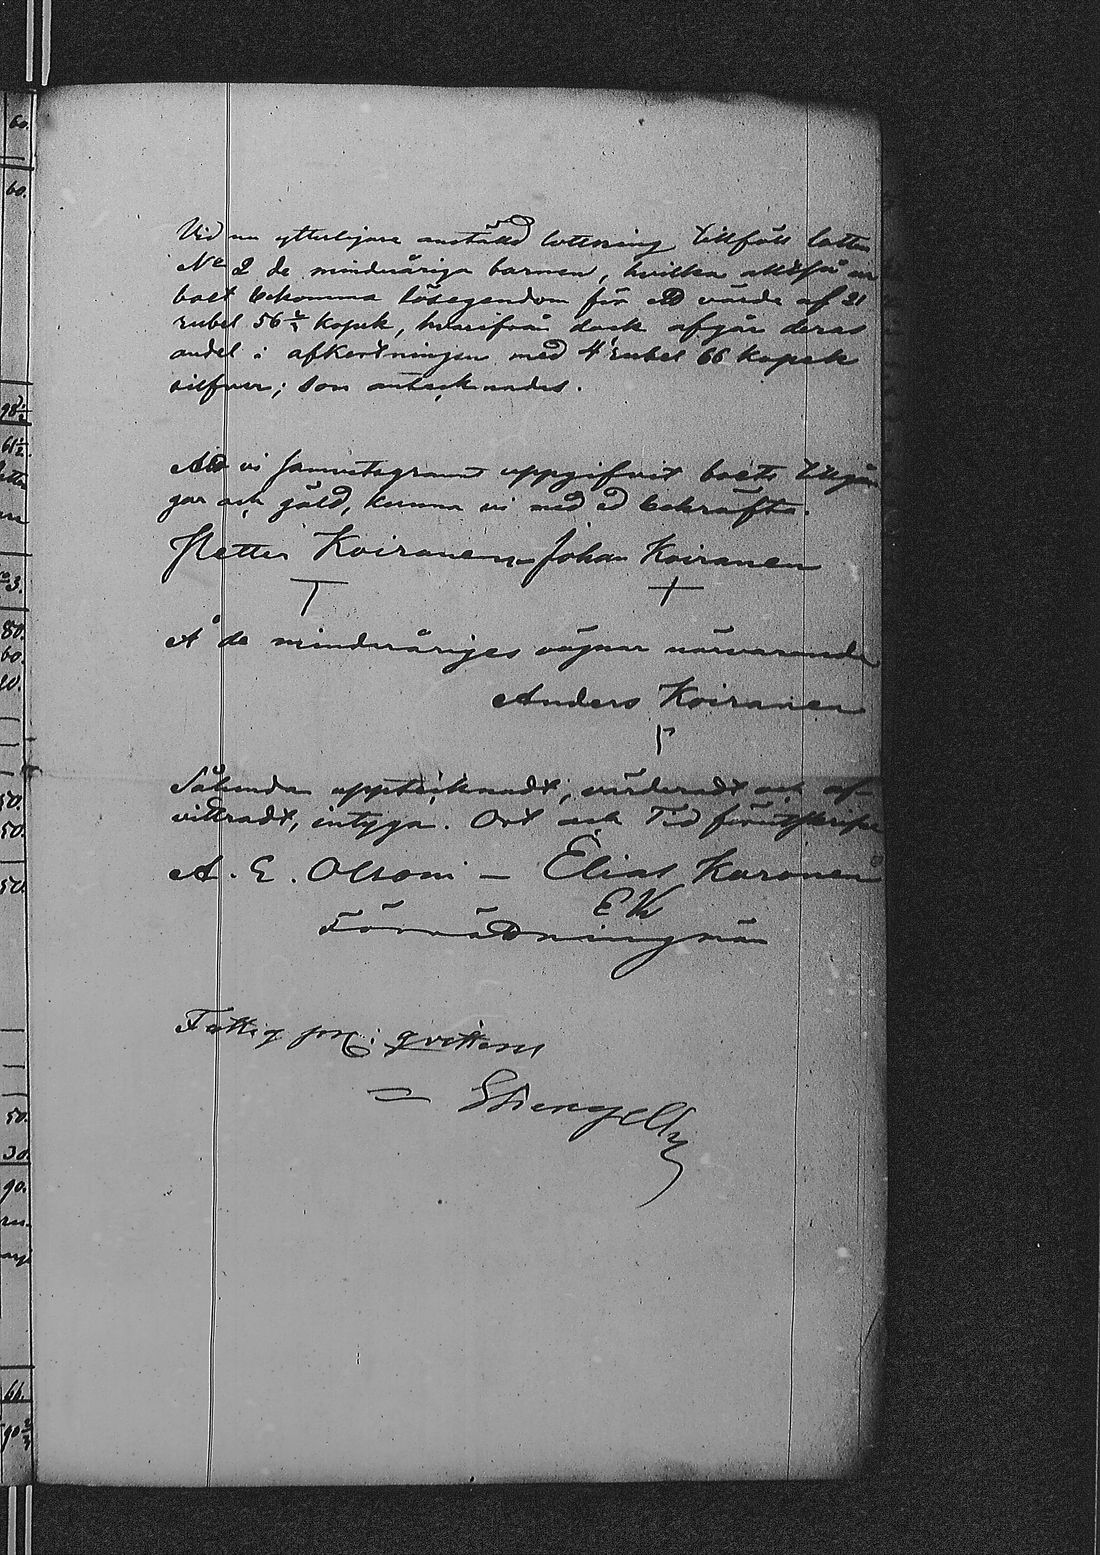 Vid nu ytterligare anställd lottning tillföll lotten
No 2 de minderåriga barnen, hvilka alltså ur
boet bekomma lösegendom för ett värde af 21
rubel 56 kopek, hvarifrån dock afgår deras
andel i afkortningen med 4 rubel 66 kopek
silfver; som antecknades.
Att vi samvetsgrant uppgifvit boets tillgån
gar och gäld, kunna vi med ed bekräfta.
Petter Koiranen Johan Koiranen
Å de minderåriges vägnar närvarande
Anders Koiranen
Sålunda upptecknadt, värderadt och af-
vittradt, intyga. Ort och Tid förutskrifne
A. E. Olsoni — Elias Karonen
EK
Förrättningsmän
Fattig proc: qvitteras
60.
60.
98½
61½
3.
80.
60.
10.
50.
50.
50.
50.
30.
90.
66.
90⅔